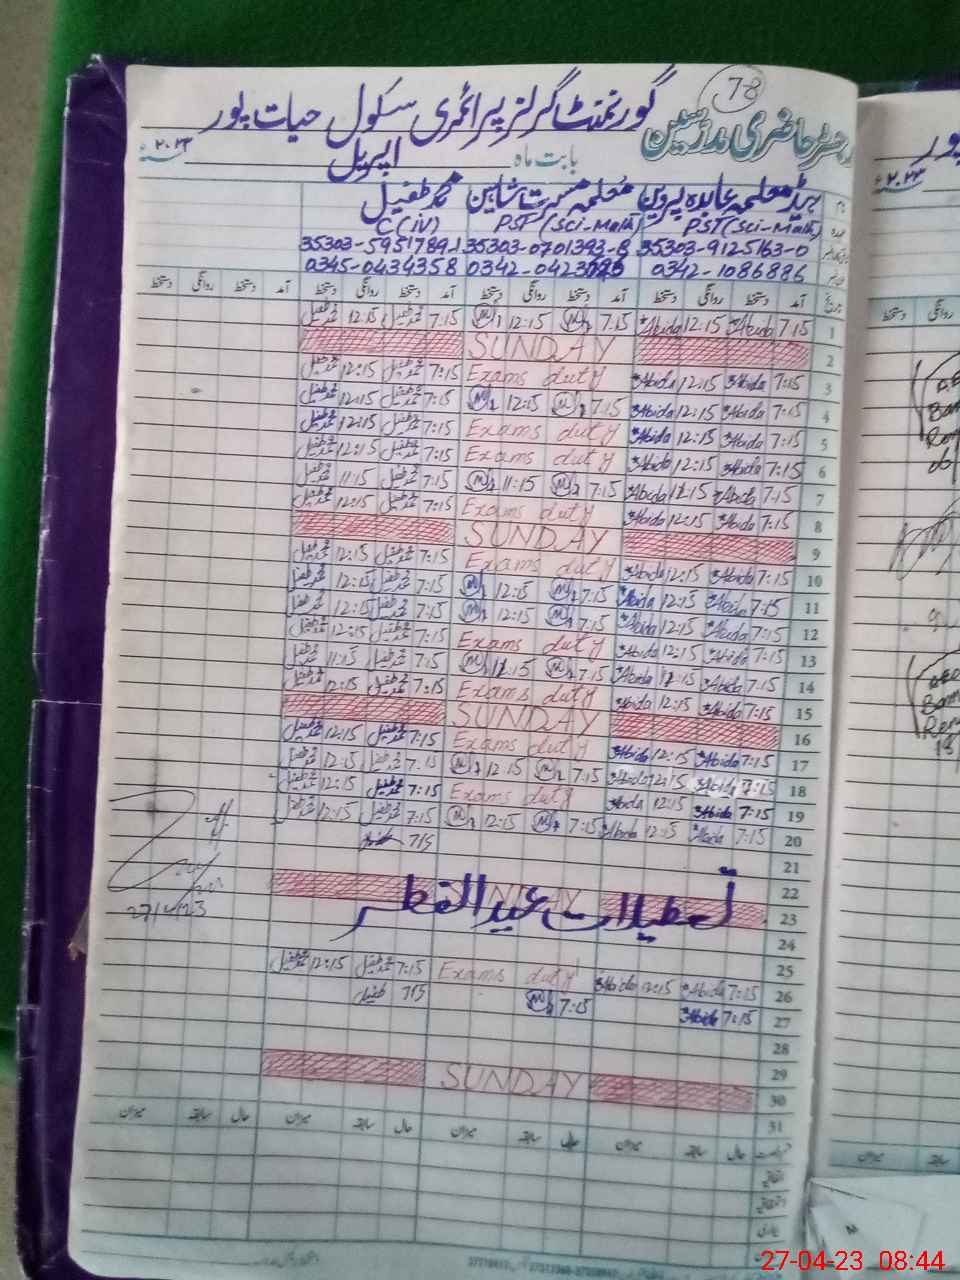 78
رجسٹر حاضری مدرسین گورنمنٹ گرلز پرائمری سکول حیات پور
بابت ماہ اپریل ۲۰۲۳ء
ہیڈ معلمہ عابدہ پروین معلمہ مسرت شاہین محمد طفیل
PST (Sci-Math) PST (Sci-Math) C(iv)
35303-9125163-0 35303-0701393-8 35303-5951789-1
0342-1086886 0342-0423 0345-0434358
تاریخ آمد دستخط روانگی دستخط آمد دستخط روانگی دستخط آمد دستخط روانگی دستخط آمد دستخط روانگی دستخط
1 7:15 Abida 12:15 Abida 7:15 M 12:15 M 7:15 محمد طفیل 12:15 محمد طفیل
2 SUNDAY
3 7:15 Abida 12:15 Abida Exams duty 7:15 محمد طفیل 12:15 محمد طفیل
4 7:15 Abida 12:15 Abida 7:15 M 12:15 M 7:15 محمد طفیل 12:15 محمد طفیل
5 7:15 Abida 12:15 Abida Exams duty 7:15 محمد طفیل 12:15 محمد طفیل
6 7:15 Abida 12:15 Abida Exams duty 7:15 محمد طفیل 12:15 محمد طفیل
7 7:15 Abida 11:15 Abida 7:15 M 11:15 M 7:15 محمد طفیل 11:15 محمد طفیل
8 7:15 Abida 12:15 Abida Exams duty 7:15 محمد طفیل 12:15 محمد طفیل
9 SUNDAY
10 7:15 Abida 12:15 Abida Exams duty 7:15 محمد طفیل 12:15 محمد طفیل
11 7:15 Abida 12:15 Abida 7:15 M 12:15 M 7:15 محمد طفیل 12:15 محمد طفیل
12 7:15 Abida 12:15 Abida 7:15 M 12:15 M 7:15 محمد طفیل 12:15 محمد طفیل
13 7:15 Abida 12:15 Abida Exams duty 7:15 محمد طفیل 12:15 محمد طفیل
14 7:15 Abida 11:15 Abida 7:15 M 11:15 M 7:15 محمد طفیل 11:15 محمد طفیل
15 7:15 Abida 12:15 Abida Exams duty 7:15 محمد طفیل 12:15 محمد طفیل
16 SUNDAY
17 7:15 Abida 12:15 Abida Exams duty 7:15 محمد طفیل 12:15 محمد طفیل
18 7:15 Abida 12:15 Abida 7:15 M 12:15 M 7:15 محمد طفیل 12:15 محمد طفیل
19 7:15 Abida 12:15 Abida Exams duty 7:15 محمد طفیل 12:15 محمد طفیل
20 7:15 Abida 12:15 Abida 7:15 M 12:15 M 7:15 محمد طفیل 12:15 محمد طفیل
21 715
22
23 SUNDAY
تعطیلات عیدالفطر
27/4/23
24
25
26 7:15 Abida 12:15 Abida Exams duty 7:15 محمد طفیل 12:15 محمد طفیل
27 7:15 Abida 7:15 M 715 طفیل
28
29
30 SUNDAY
31
حال سابقہ میزان حال سابقہ میزان حال سابقہ میزان حال سابقہ میزان
27-04-23 08:44